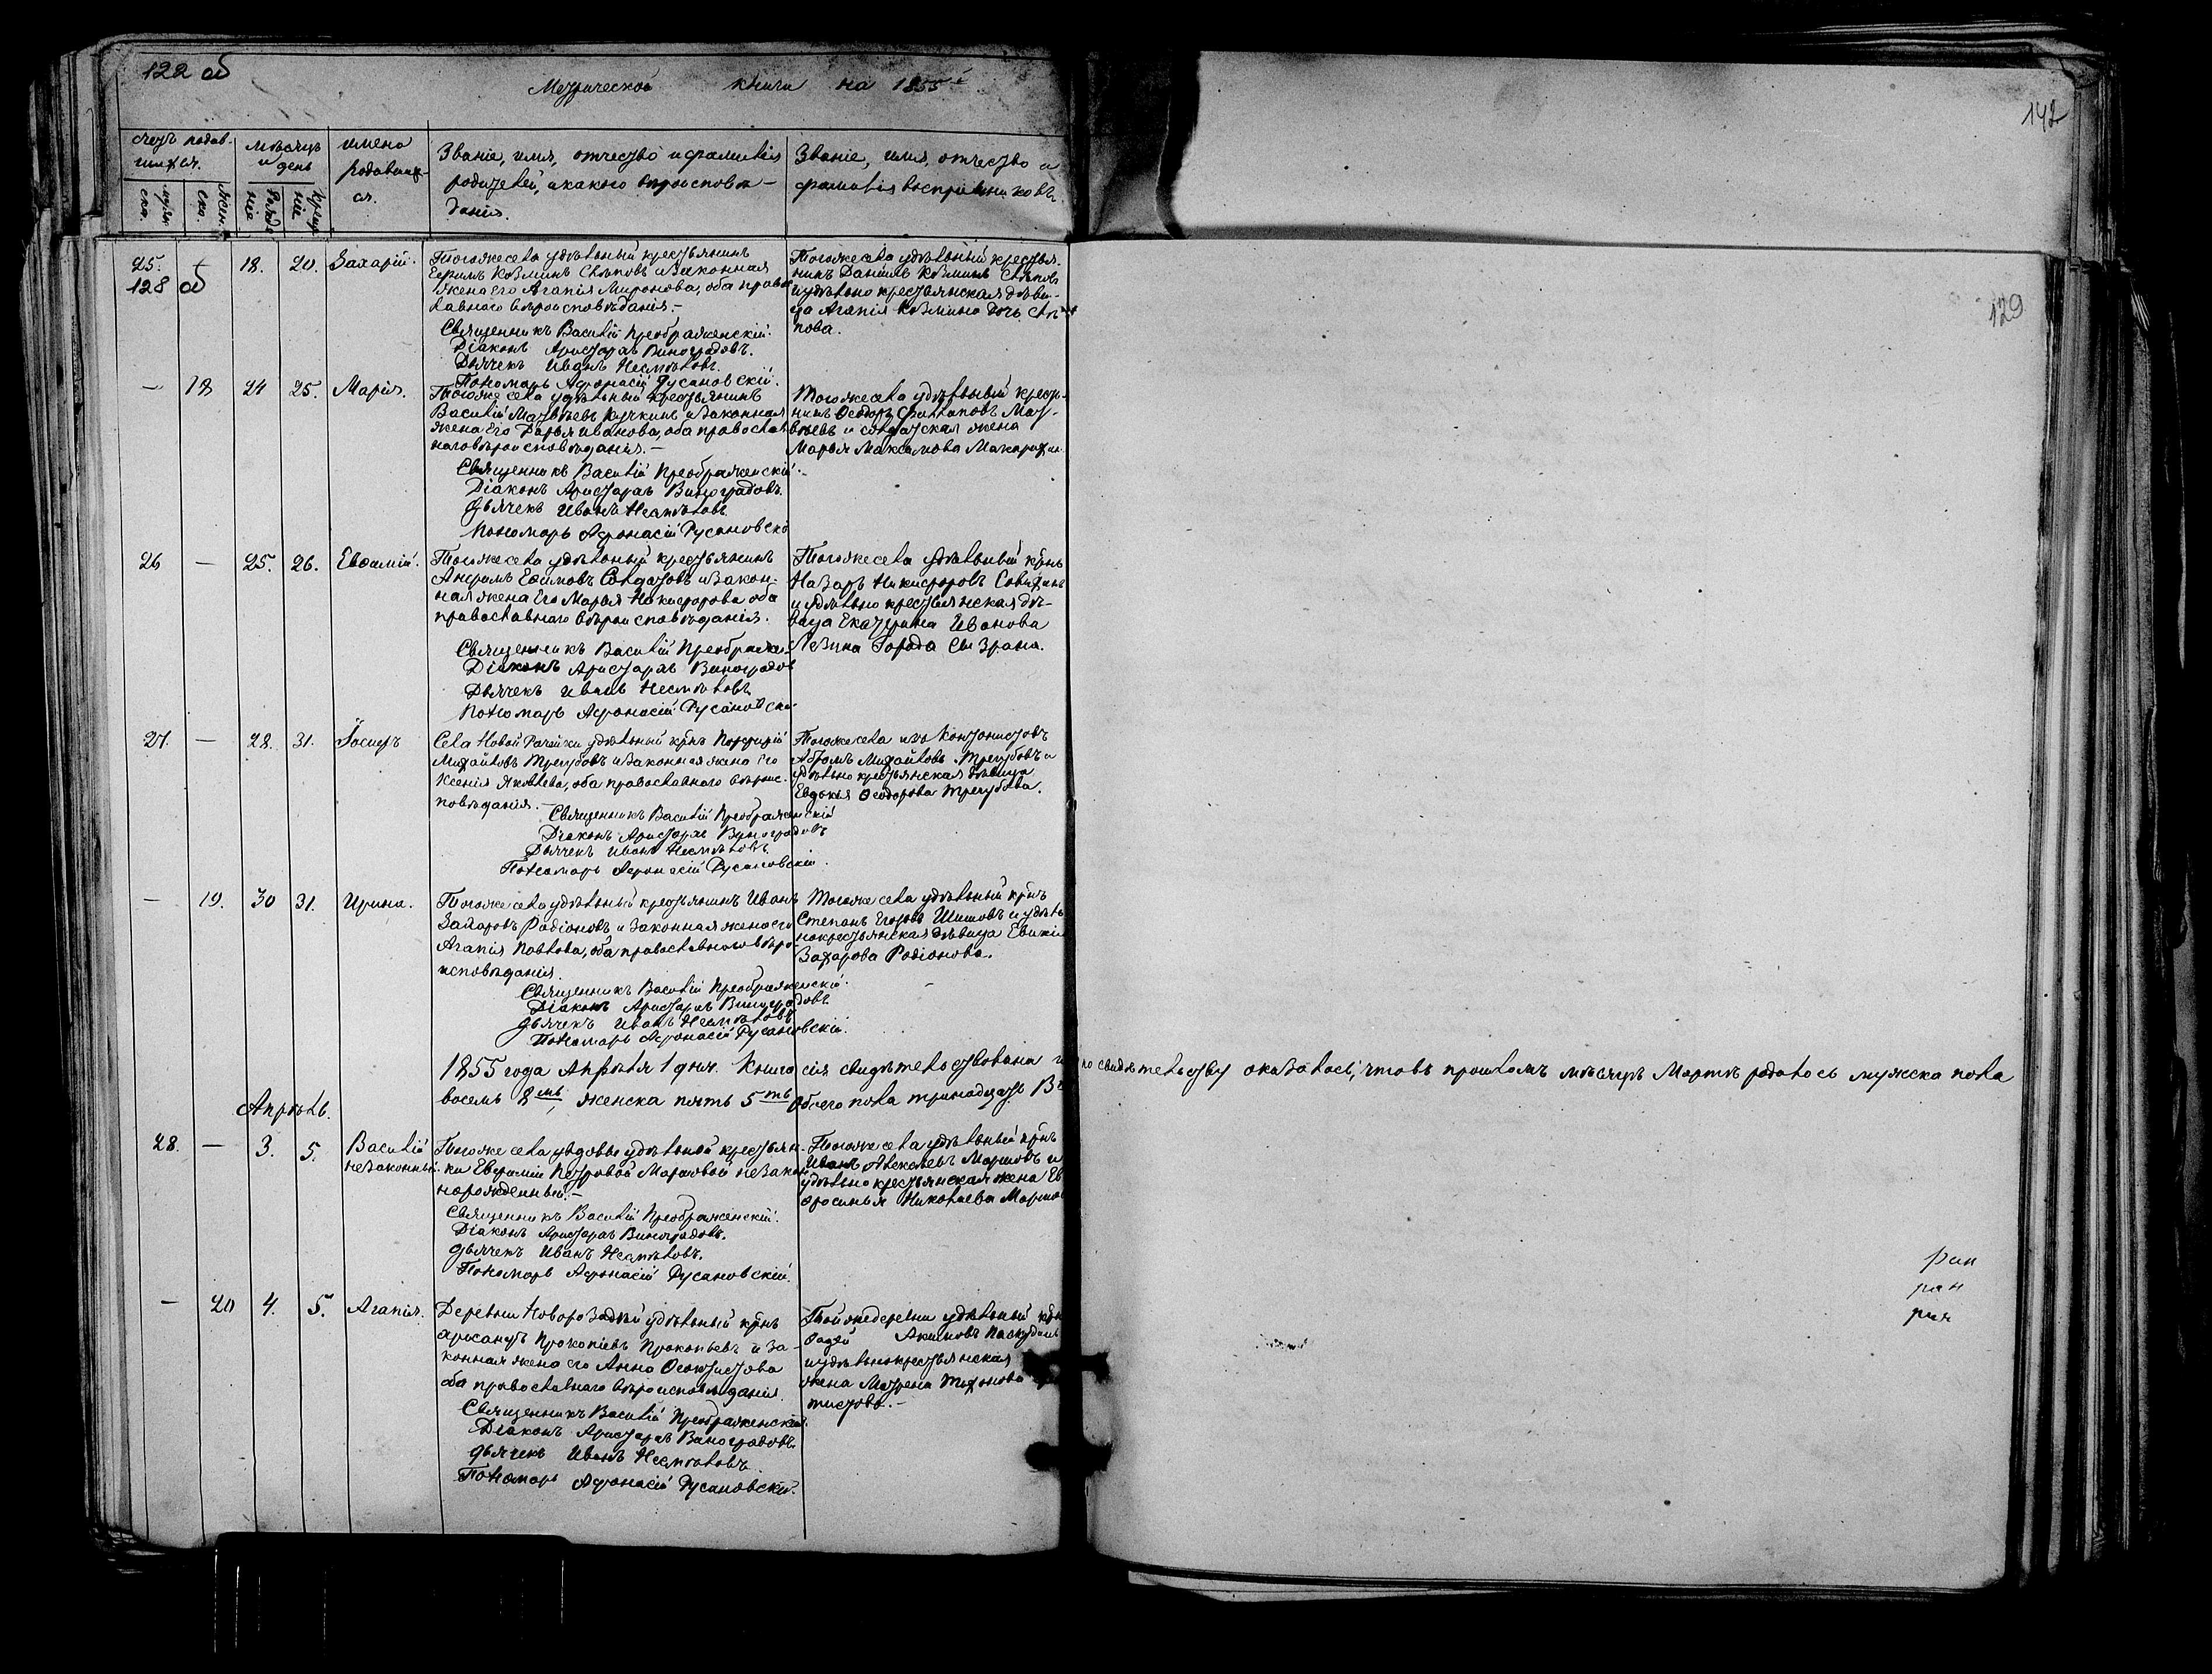 122 об
Метрической книги на 1855й
142
счетъ родив-
шихся.
мужс
ска.
женс
ска.
мѣсяцъ
и день
Рожде
ніе
Креще
ніе
имена
родивших-
ся.
Званіе, имя, отчество и фамилія
родителей, и какого вѣроисповѣ-
данія.
Званіе, имя, отчество и
фамилія воспріемниковъ.
129
25. 18. 20. Захарій.
128 об
Тогоже села удѣльный крестьянинъ
Ефимъ Козминъ Слѣповъ и законная
жена его Агапія Миронова, оба право
славнаго вѣроисповѣданія.—
Священникъ Василій Преображенскій.
Діаконъ Аристархъ Виноградовъ.
Дьячекъ Иванъ Несмѣловъ.
Пономарь Афонасій Русановскій.
Тогоже села удѣльный крестья-
нинъ Даниилъ Козминъ Слѣповъ
и удѣльно крестьянская дѣви-
ца Агапія Козмина дочь Слѣ-
пова.
— 18 24 25. Марія.
Тогоже села удѣльный крестьянинъ
Василій Матвѣевъ Кучкинъ и законная
жена его Дарья Иванова, оба православ
наго вѣроисповѣданія.—
Священникъ Василій Преображенскій.
Діаконъ Аристархъ Виноградовъ.
Дьячекъ Иванъ Несмѣловъ.
Пономарь Афонасій Русановскі
Тогоже села удѣльный крестья-
нинъ Ѳеодоръ Филлиповъ Мат-
вѣевъ и солдатская жена
Марья Максимова
26 — 25. 26. Евфимій.
Тогоже села удѣльный крестьянинъ
Ефимовъ Солдатовъ и закон-
ная жена его Марья Никифорова оба
православнаго вѣроисповѣданія.
Священникъ Василій Преображен
Діаконъ Аристархъ Виноградов
Дьячекъ Иванъ Несмѣловъ
Пономарь Афонасій Русановскі
Тогоже села удѣльный крнъ
Назаръ Никифоровъ Савихинъ
и удѣльно крестьянская дѣ-
вица Екатерина Иванова
Лѣзина Города Сызрана.
27. — 28. 31. Іосифъ
Села Новой Рачейки удѣльный крнъ Порфирій
Михайловъ Трегубовъ и законная жена его
Ксенія Яковлева, оба православнаго вѣроис-
повѣданія.—
Священникъ Василій Преображенскій
Діаконъ Аристархъ Виноградовъ
Дьячекъ Иванъ Несмѣловъ.
Пономарь Афонасій Русановскій.
Тогоже села изъ Кантонистовъ
Абрамъ Михайловъ Трегубовъ и
удѣльно крестьянская дѣвица
Евдокья Ѳеодорова Трегубова.
— 19. 30 31. Ирина.
Тогоже села удѣльный крестьянинъ Иванъ
Захаровъ Родіоновъ и законная жена его
Агапія Павлова, оба православнаго вѣро-
исповѣданія.
Священникъ Василій Преображенскій.
Діаконъ Аристархъ Виноградовъ
Дьячекъ Иванъ Несмѣловъ
Пономарь Афонасій Русановскій.
Тогоже села удѣльный крнъ
Степанъ Егоровъ Шишовъ и удѣль
нокрестьянская дѣвица
Захарова Родіонова.
1855 года Апрѣля 1 дня. Книга сія свидѣтельствована и по свидѣтельству оказалось, что въ прошломъ мѣсяцѣ Мартѣ родилось мужска пола
восемь 8мь, женска пять 5ть обоего пола тринадцать 13
Апрѣль.
28. — 3. 5. Василій
незаконный.
Тогоже села удѣльной крестьян-
ки Евфиміи Петровой Маршовой незакон
норожденный.—
Священникъ Василій Преображенскій.
Діаконъ Аристархъ Виноградовъ.
Дьячекъ Иванъ Несмѣловъ.
Пономарь Афонасій Русановскій.
Тогоже села удѣльный крнъ
Иванъ Алексѣевъ Маршовъ и
удѣльно крестьянская жена Ев
фросинья Николаева
— 20 4. 5. Агапія.
Деревни удѣльный крнъ
Прокопьевъ и за-
конная жена его Анна
оба православнаго вѣроисповѣданія
Священникъ Василій Преображенскій.
Діаконъ Аристархъ Виноградовъ.
Дьячекъ Иванъ Несмѣловъ
Пономарь Афонасій Русановскій.
Тойже деревни удѣльный крн
Фадѣй Акимовъ
и удѣльнокрестьянская
жена Матрена Тихонова